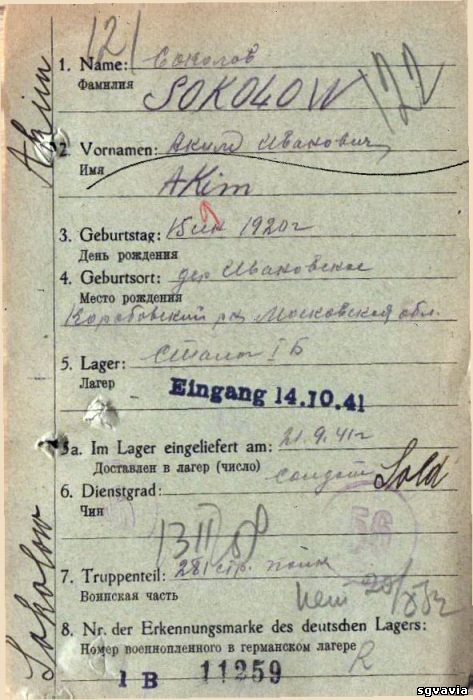 121
1. Name: Соколов
Фамилия
SOKOŁOW
122
Akim
2. Vornamen: Аким Иванович
Имя
AKim
3. Geburtstag: 15 1920г
День рождения
4. Geburtsort: дер Ивановское
Место рождения
Коробовский рн. Московская обл.
5. Lager: Сталаг I Б
Лагер
Eingang 14.10.41
5a. Im Lager eingeliefert am: 21.9.41г
Доставлен в лагер (число)
6. Dienstgrad: солдат Sold
Чин
56
7. Truppenteil: 281 стр. полк
Воинская часть
8. Nr. der Erkennungsmarke des deutschen Lagers:
Номер военнопленного в германском лагере
I B 11259
R
Sokolow
sgvavia